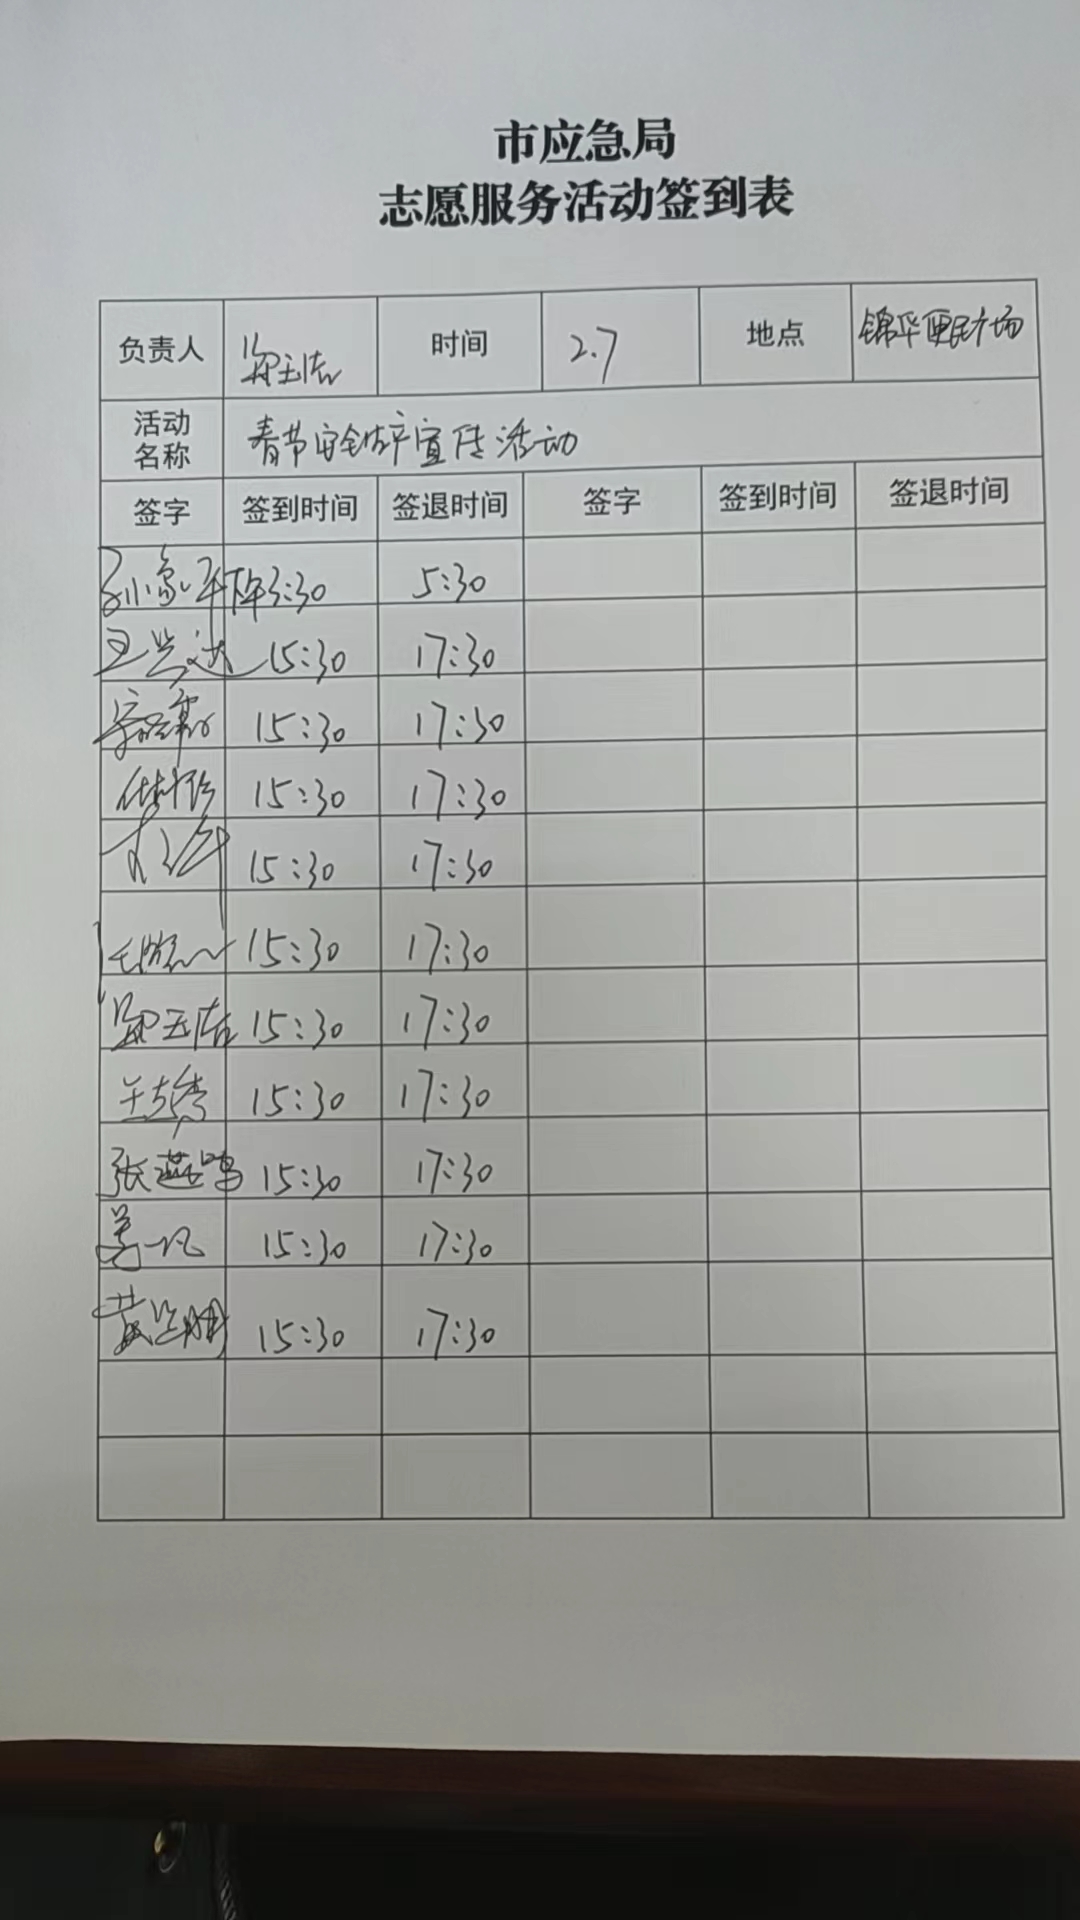 市应急局
志愿服务活动签到表
负责人 时间 2.7 地点 锦华便民广场
活动名称 春节安全生产宣传活动
签字 签到时间 签退时间 签字 签到时间 签退时间
下午3:30 5:30
15:30 17:30
15:30 17:30
15:30 17:30
15:30 17:30
15:30 17:30
15:30 17:30
15:30 17:30
张燕鸣 15:30 17:30
姜一凡 15:30 17:30
15:30 17:30